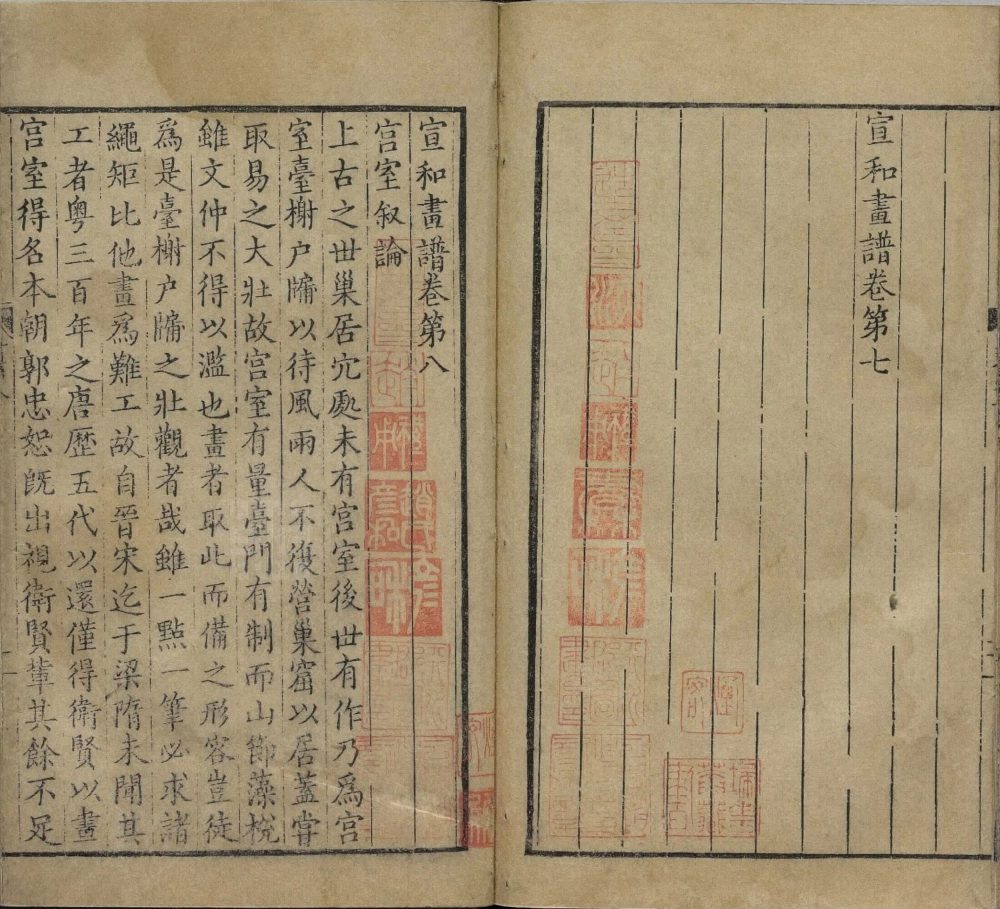 宣和畫譜卷第七
宣和畫譜卷第八
宮室叙論
上古之世巢居穴處未有宮室後世有作乃爲宮
室臺榭户牖以待風雨人不復營巢窟以居蓋嘗
取易之大壯故宮室有量臺門有制而山節藻梲
雖文仲不得以濫也畫者取此而備之形容豈徒
爲是臺榭户牖之壯觀者哉雖一點一筆必求諸
繩矩比他畫爲難工故自晉宋迄于梁隋未聞其
工者粤三百年之唐歷五代以還僅得衛賢以畫
宮室得名本朝郭忠恕既出視衛賢輩其餘不足